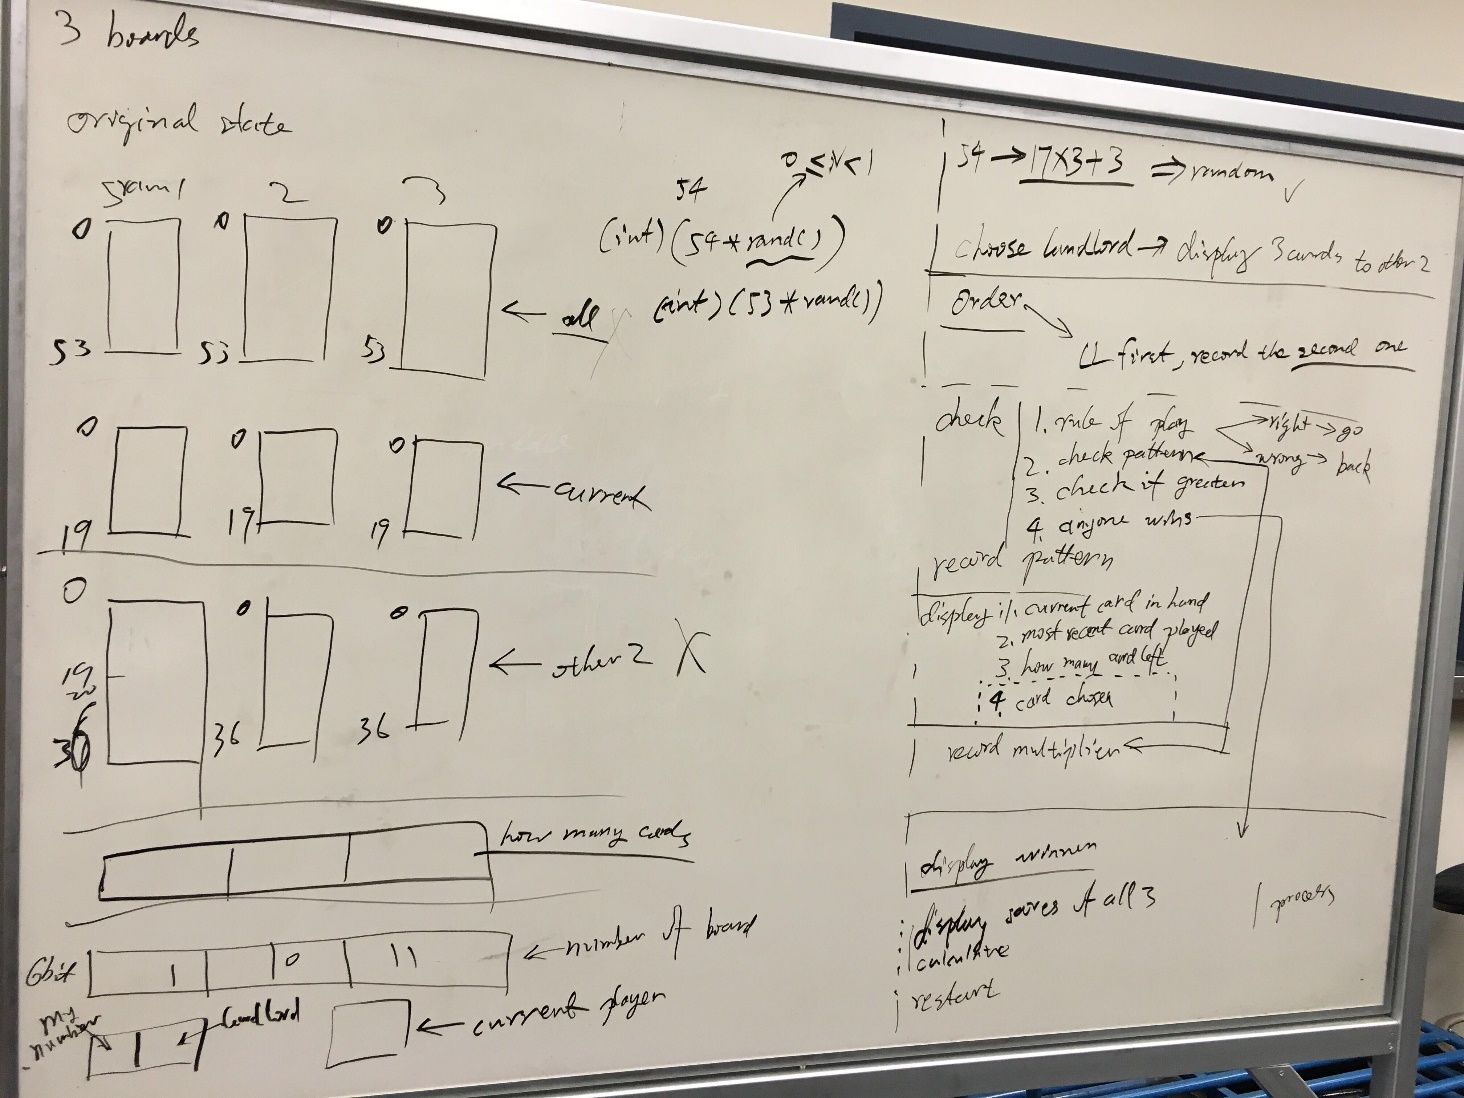 3 boards
original state
sram1 2 3
0 0 0
53 53 53
← all
54
0 ≤ N < 1
(int)(54 * rand())
(int)(53 * rand())
0 0 0
19 19 19
← current
0 0 0
19
20
36 36 36
← other 2 X
how many cards
6bit 1 10 11 ← number of board
my number
1
landlord
← current player
54 → 17×3+3 ⇒ random ✓
choose landlord → display 3 cards to other 2
Order
LL first, record the second one
check 1. rule of play → right → go
→ wrong → back
2. check pattern
3. check if greater
4. anyone wins
record pattern
display: 1. current card in hand
2. most recent card played
3. how many card left
4. card chosen
record multiplier
display winner
display scores of all 3
calculate
restart
1 process